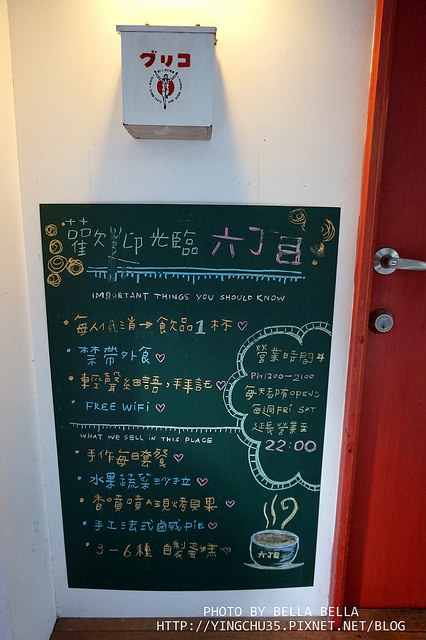 グリコ
歡迎光臨 六丁目
IMPORTANT THINGS YOU SHOULD KNOW
• 每人低消→飲品1杯♡
• 禁帶外食♡
• 輕聲細語,拜託♡
• FREE WiFi♡
營業時間
PM1200-2100
每天都有OPEN
每週Fri SAT
延長營業至
22:00
WHAT WE SELL IN THIS PLACE
• 手作每日套餐♡
• 水果蔬菜沙拉♡
• 香噴噴現烤貝果♡
• 手工法式鹹Pie♡
• 3-6種 自製蛋糕♡
六丁目
PHOTO BY BELLA BELLA
HTTP://YINGCHU35.PIXNET.NET/BLOG